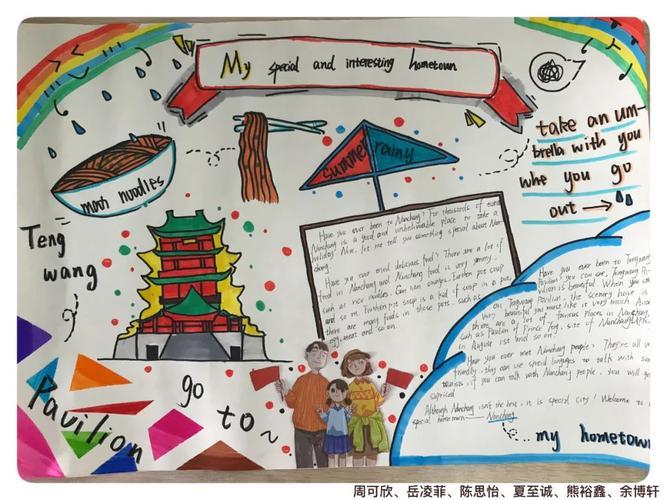 My special and interesting hometown
take an um-
brella with you
whe you go
out →
summer rainy
mnoh noodles
Teng
wang
Pavilion
go
to~
Have you ever been to Nanchang? For thousands of
Nanchang is a good and unbelievable place to take a
holiday. Now, let me tell you something special about Nan-
chang.
Have you ever delicious food? There are a lot of
food in Nanchang and Nanchang food is very yummy.
such as rice noodles Gan nan oranges Earthen pot soup
and so on. Earthen pot soup is a kid of soup in a pot,
there are many foods in these pots, such as
egg, meat and so on.
Have you ever been to Tengwang
Pavilion? you can see, Tengwang Pa-
vilion is beautiful. When you
on Tengwang Pavilion, the scenery here is
very beautiful you must like it very much.
there are a lot of famous places in Nanchang,
such as Pavilion of Prince Teng, site of Nanchang
in August 1st and so on.
Have you ever met Nanchang people? They're all
friendly, they can use special languages to talk with
tourists, if you can talk with Nanchang people. You will
surprised
Although Nanchang isn't the best, it is special city! Welcome to
special hometown——Nanchang.
my hometown
周可欣、岳凌菲、陈思怡、夏至诚、熊裕鑫、余博轩